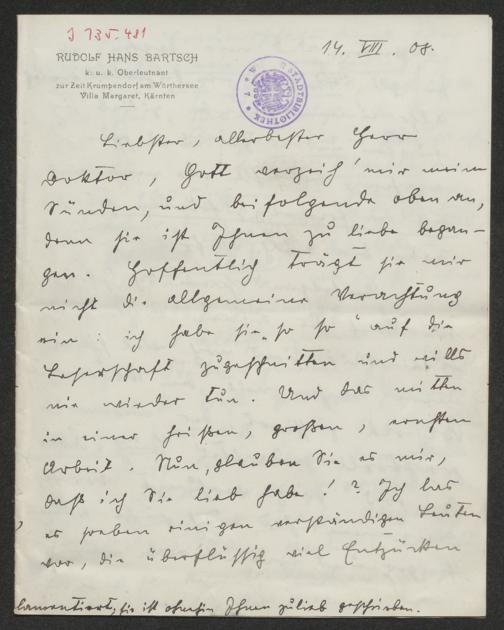 J 135.481
RUDOLF HANS BARTSCH
k. u. k. Oberleutnant
zur Zeit Krumpendorf am Wörthersee
Villa Margaret, Kärnten
14. VIII. 08.
STADTBIBLIOTHEK
Liebster, allerbester Herr
Doktor, Gott verzeih' mir meine
Sünden, und beifolgende oben an,
denn sie ist Ihnen zu liebe began-
gen. Hoffentlich trägt sie mir
nicht die allgemeine Verachtung
ein: ich habe sie „so so" auf die
Leserschaft zugeschnitten und wills
nie wieder tun. Und das mitten
in einer heißen, großen, ernsten
Arbeit. Nun, glauben Sie es mir,
daß ich Sie lieb habe!? Ich las
es soeben einigen verständigen Leuten
vor, die überflüssig viel Entzücken
lamentiert, sie ist ohnehin Ihnen zulieb geschrieben.